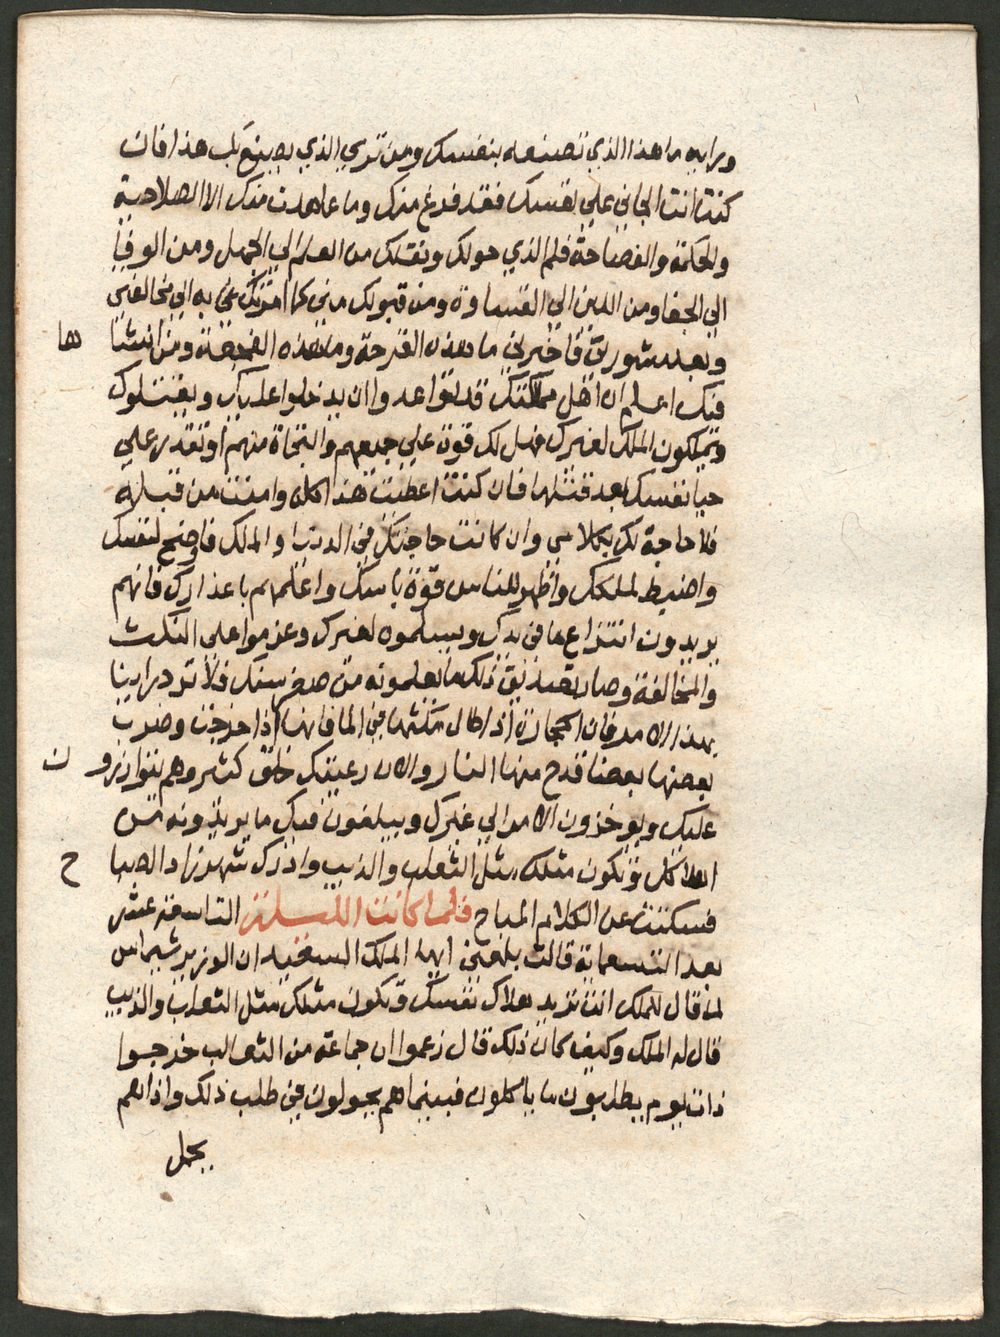 ورايه ما هذا الذي تصنعه بنفسك ومن تري الذي يصنع بك هذا فان
كنت انت الجاني علي نفسك فقد فرغ منك وما عاهدت منك الا الصلاحية
والحكمة والفصاحة فلم الذي حولك ونقلك من العلم الي الجهل ومن الوفا
الي الجفا ومن اللين الي القساوة ومن قبولك مني كما امرتك به اني مخالفتي
وبعد شورتي فاخبرني ما هذه الفرحة وما هذه الفجيعة ومن انشا ها
فيك اعلم ان اهل مملكتك قد تواعدوا ان يدخلوا عليك ويقتلوك
ويملكون الملك لغيرك فهل لك قوة علي جميعهم والنجاة منهم او تقدر علي
حيا نفسك بعد قتلها فان كنت اعطيت هذا كله وامنت من قبله
فلا حاجة لك بكلامي وان كانت حاجتك في الدنيا والملك فاوضح لنفسك
واضبط لملكك واظهر للناس قوة باسك واعلمهم باعذارك فانهم
يريدون انتزاع ما في يدك ويسلموه لغيرك وعزموا علي النكث
والمخالفة وصار بعد ذلك ما يعلمونه من صغر سنك فلا ترد راينا
بهذا الامر فان الحجارة اذا طال مكثها في الما فانها اذا خرجت وضرب
بعضها بعضا قدح منها النار والان رعيتك خلق كثير وهم يتوازرو ن
عليك ويوخذون الامر الي غيرك ويبلغون فيك ما يريدونه من
الهلاك وتكون مثلك مثل الثعلب والذيب وادرك شهرزاد الصبا ح
فسكتت عن الكلام المباح فلما كانت الليلة التاسعة عشر
بعد التسعماية قالت بلغني ايها الملك السعيد ان الوزير شيراس
لما قال للملك انت تريد هلاك نفسك وتكون مثلك مثل الثعلب والذيب
قال له الملك وكيف كان ذلك قال زعموا ان جماعة من الثعالب خرجوا
ذات يوم يطلبون ما ياكلون فبينما هم يجولون في طلب ذلك واذا هم
بجمل